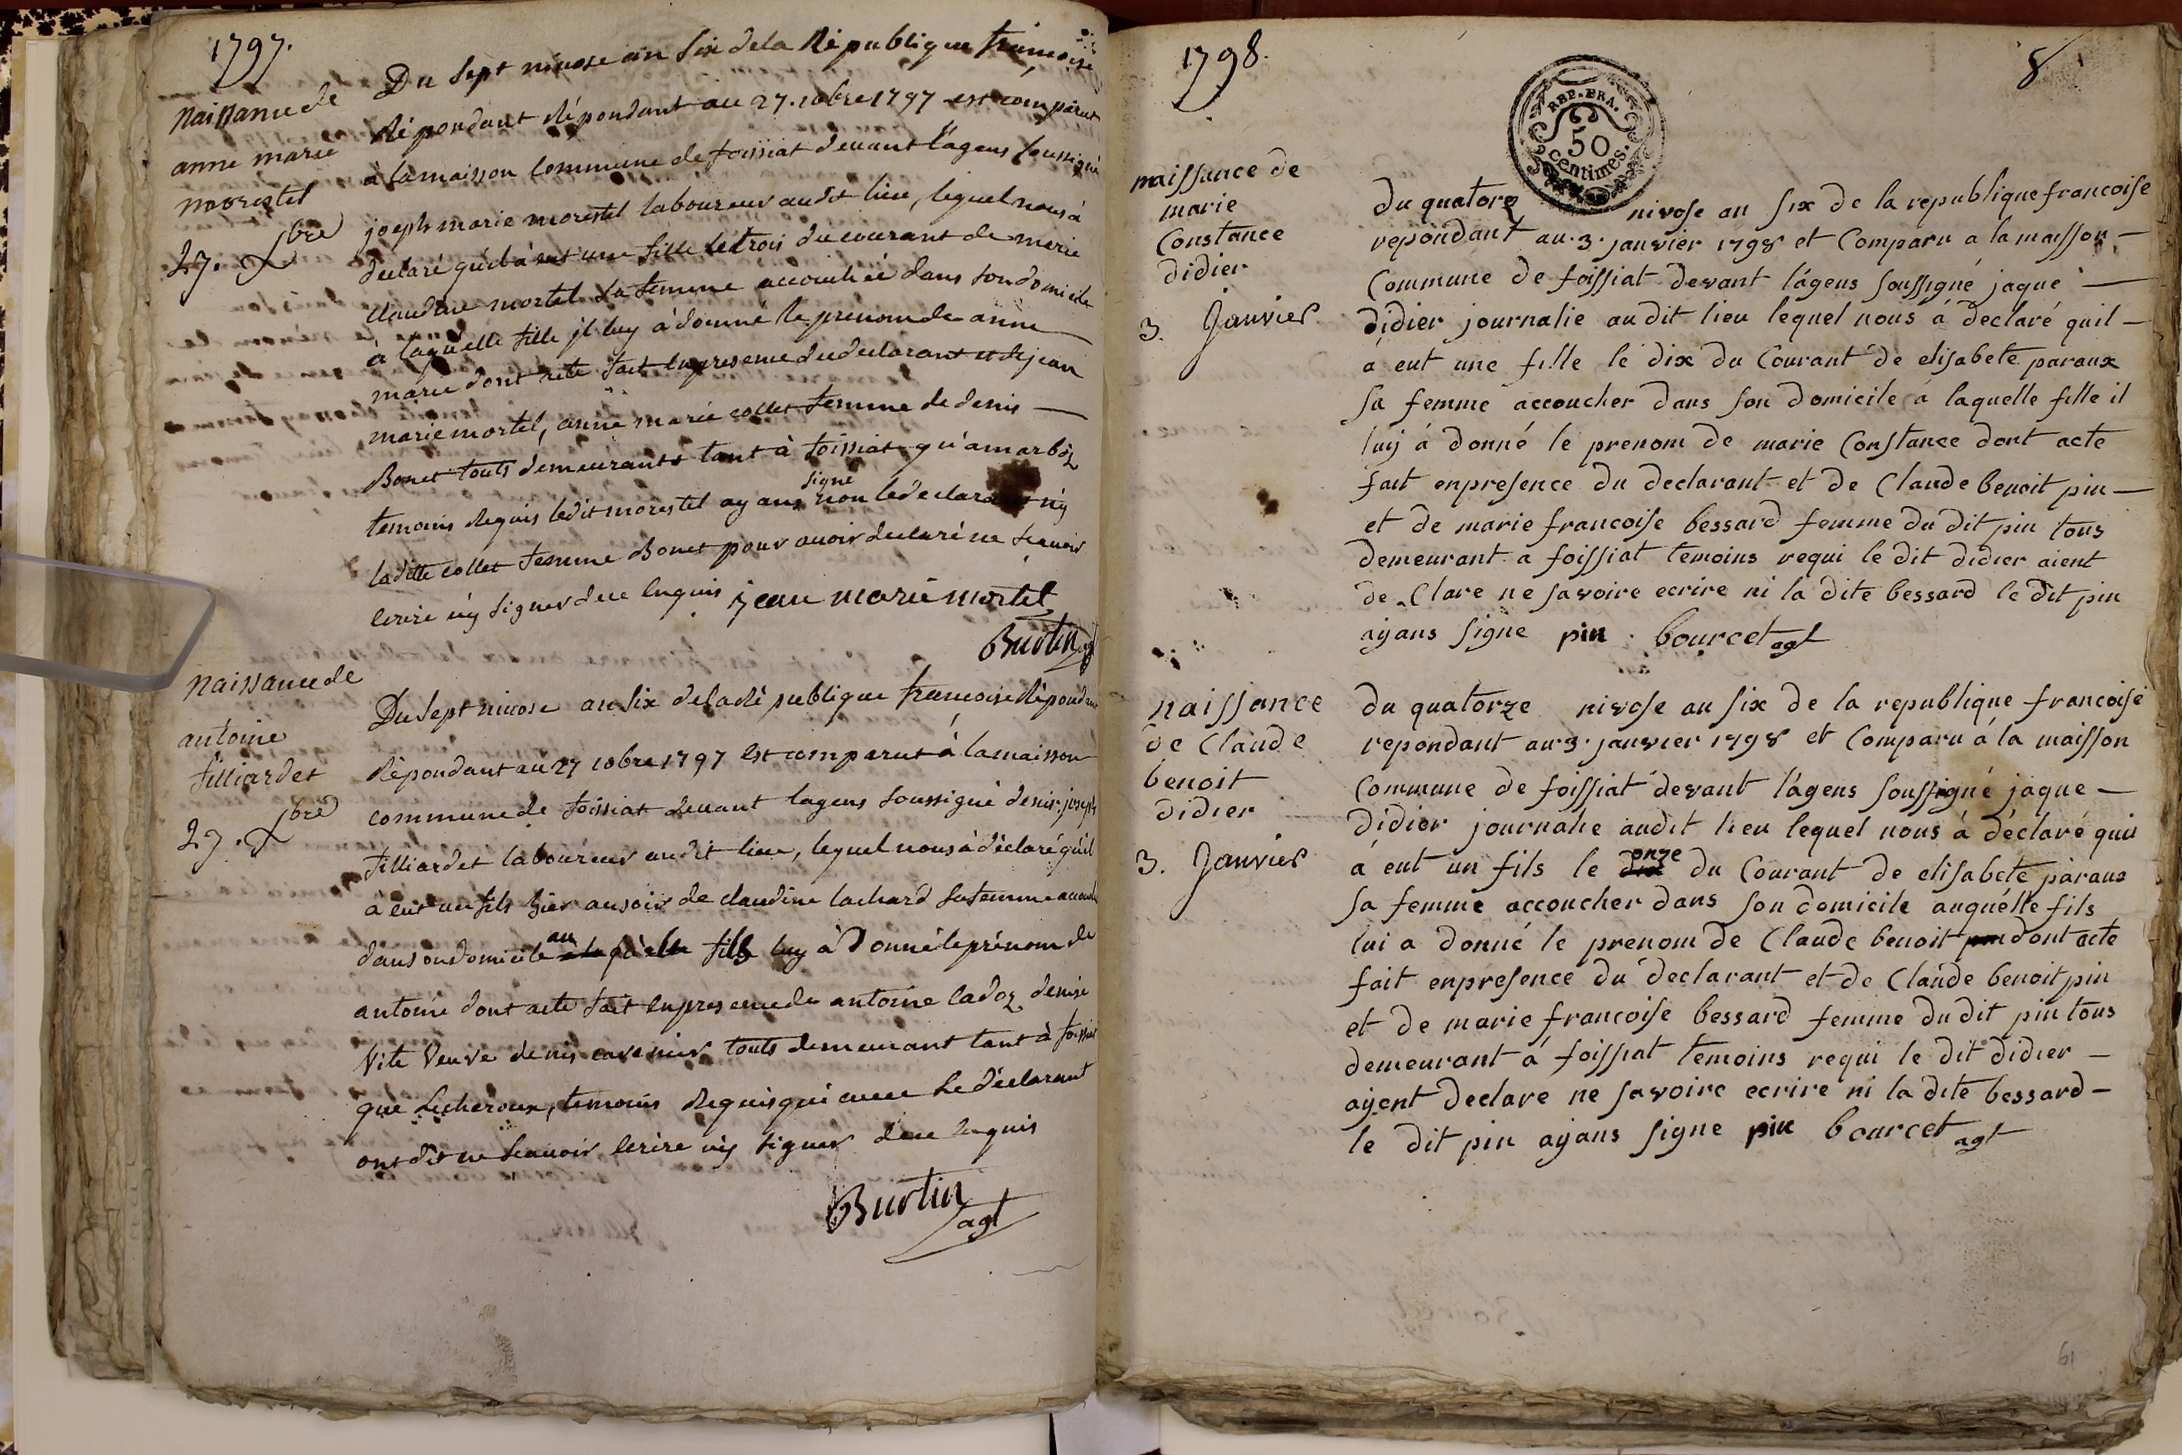 1797.
naissance de
anne marie
morestel
27. Xbre
Du sept nivose an six de la République francoise
Répondant Répondant au 27. 10bre 1797 est comparut
à la maisson Commune de foissiat devant l'agens soussigné
joseph marie morestel laboureur audit lieu, lequel nous à
declaré quil à eut une fille le trois du courant de marie
claudine mortel sa femme accouchée dans son domicile
à laquelle fille jl luy à donné le prenom de anne
marie dont acte fait en presence du declarant et de jean
marie mortel, anne marie collet femme de denis —
Bonet touts demeurants tant à foissiat qu'a marboz
temoins Requis ledit morestel ayans signe non le declarant n'y
laditte collet femme Bonet pour avoir declaré ne scavoir
ecrire n'y signer de ce enquis jean marie mortel
Burtin agt
naissance de
antoine
filliardet
27. Xbre
Du sept nivose an six de la Ré publique francoise Répondant
Répondant au 27 10bre 1797 est comparut à la maisson
commune de foissiat devant lagens soussigné denis joseph
filliardet laboureur audit lieu, lequel nous à déclaré quil
à eut un fils hier au soir de claudine lachard sa femme accouch
dans son domicile au à la quelle fils luy à Donné le prénom de
antoine dont acte fait en presence de antoine cadoz denise
vite veuve denis cavenier touts demeurant tant à foissiat
que Lecheroux, temoins Requis qui avec Le déclarant
ont dit ne scavoir ecrire n'y signer de ce enquis
Burtin
agt
1798.
8
REP. FRA.
50
centimes.
naissance de
marie
Constance
didier
3. Janvier
du quatorz nivose an six de la republique francoise
repondant au 3. janvier 1798 et Comparu a la maisson —
Commune de foissiat devant l'agens soussigné jaque —
didier journalie audit lieu lequel nous á declaré quil —
á eut une fille le dix du Courant de elisabete paraux
sa femme accoucher dans son domicile á laquelle fille il
luy á donné le prenom de marie Constance dont acte
fait enpresence du declarant et de Claude benoit pin —
et de marie francoise bessard femme du dit pin tous
demeurant a foissiat temoins requi le dit didier aient
de Clare ne savoire ecrire ni la dite bessard le dit pin
ayans signe pin . bourcet agt
naissance
de Claude
benoit
didier
3. Janvier
du quatorze nivose an six de la republique francoise
repondant au 3. janvier 1798 et Comparu á la maisson
Commune de foissiat devant l'agens soussigné jaque —
didier journalie audit lieu lequel nous à déclaré quil
á eut un fils le dix onze du Courant de elisabete paraux
sa femme accoucher dans son domicile auquélle fils
lui a donné le prenom de Claude benoit dont acte
fait enpresence du declarant et de Claude benoit pin
et de marie francoise bessard femme du dit pin tous
demeurant á foissiat temoins requi le dit didier —
ayent declare ne savoire ecrire ni la dite bessard —
le dit pin ayans signe pin bourcet agt
61